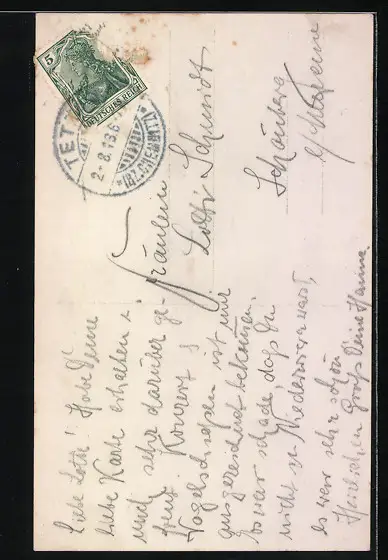 5
DEUTSCHES REICH
TET
2.8.13.6
* (BZ. CHEMNITZ) *
Fräulein
Lotte Schmidt
Schönberg
b/
Liebe Lotte! Habe Deine
liebe Karte erhalten u.
mich sehr darüber ge-
freut. Konzert u.
Vogelschießen ist mir
ausgezeichnet bekommen.
Es war schade daß Du
nicht in Niederwinkel warst,
es war sehr schön
Herzlichen Gruß Deine Hanna.